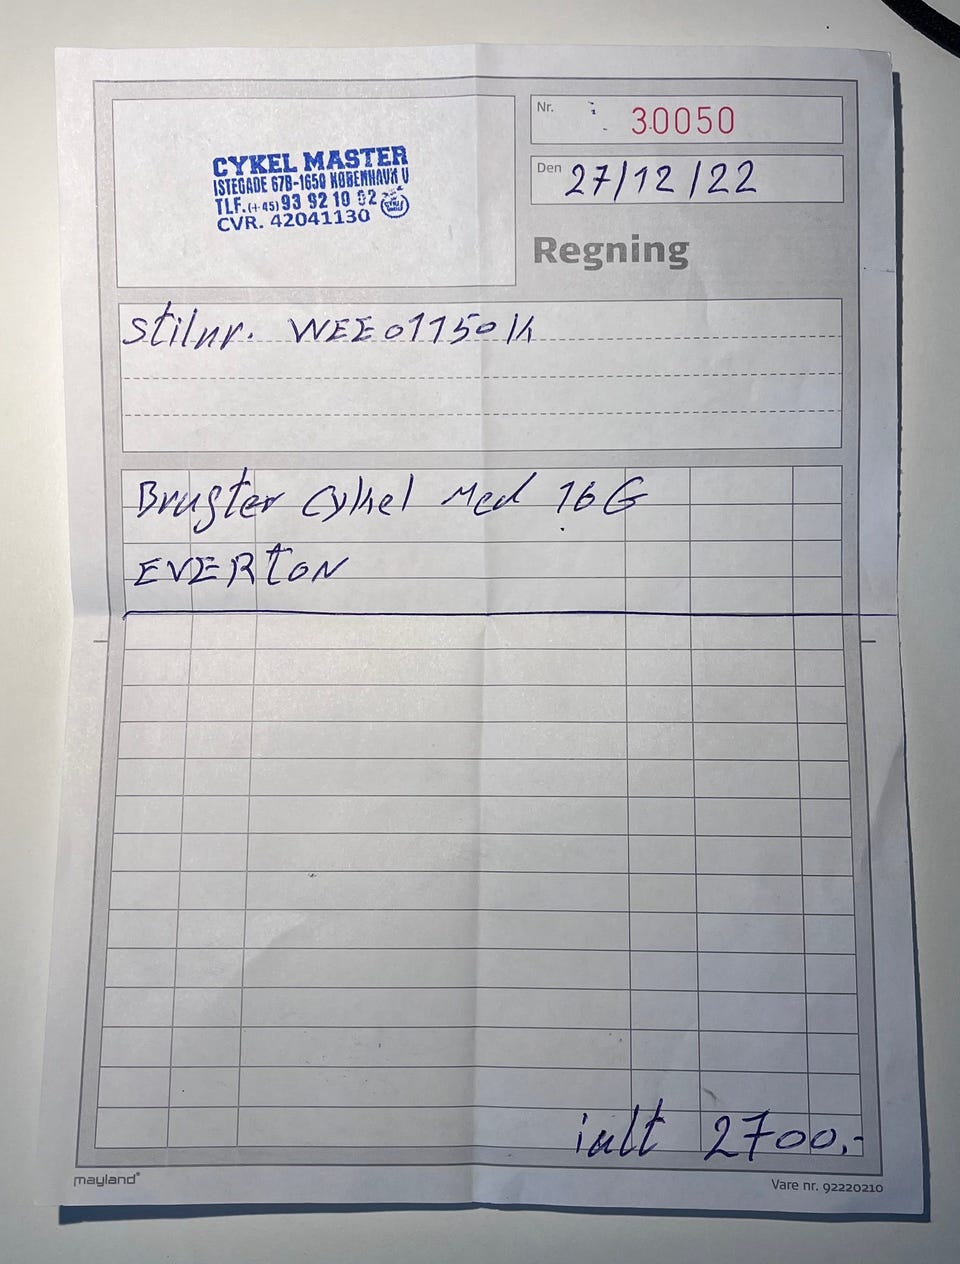 Nr. 30050
CYKEL MASTER
ISTEGADE 67B-1650 KØBENHAVN V
TLF.(+45) 93 92 10 02
CVR. 42041130
Den 27/12/22
Regning
Stilnr. WEE01150K
Brugter Cykel Med 16 G
EVERTON
ialt 2700,-
mayland
Vare nr. 92220210